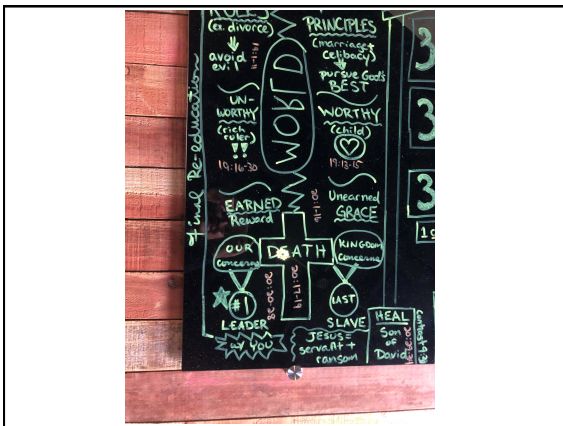 RULES
(ex. divorce)
avoid
evil
19:1-11
UN-
WORTHY
(rich
ruler)
!!
19:16-30
EARNED
Reward
OUR
concerns
#1
LEADER
w/ YOU
Final Re-education
WORLD
DEATH
20:17-19
20:20-28
PRINCIPLES
(marriage +
celibacy)
pursue God's
BEST
WORTHY
(child)
19:13-15
Unearned
GRACE
20:1-16
KINGDOM
concerns
LAST
SLAVE
JESUS =
servant +
ransom
HEAL
Son
of
David
3
3
3